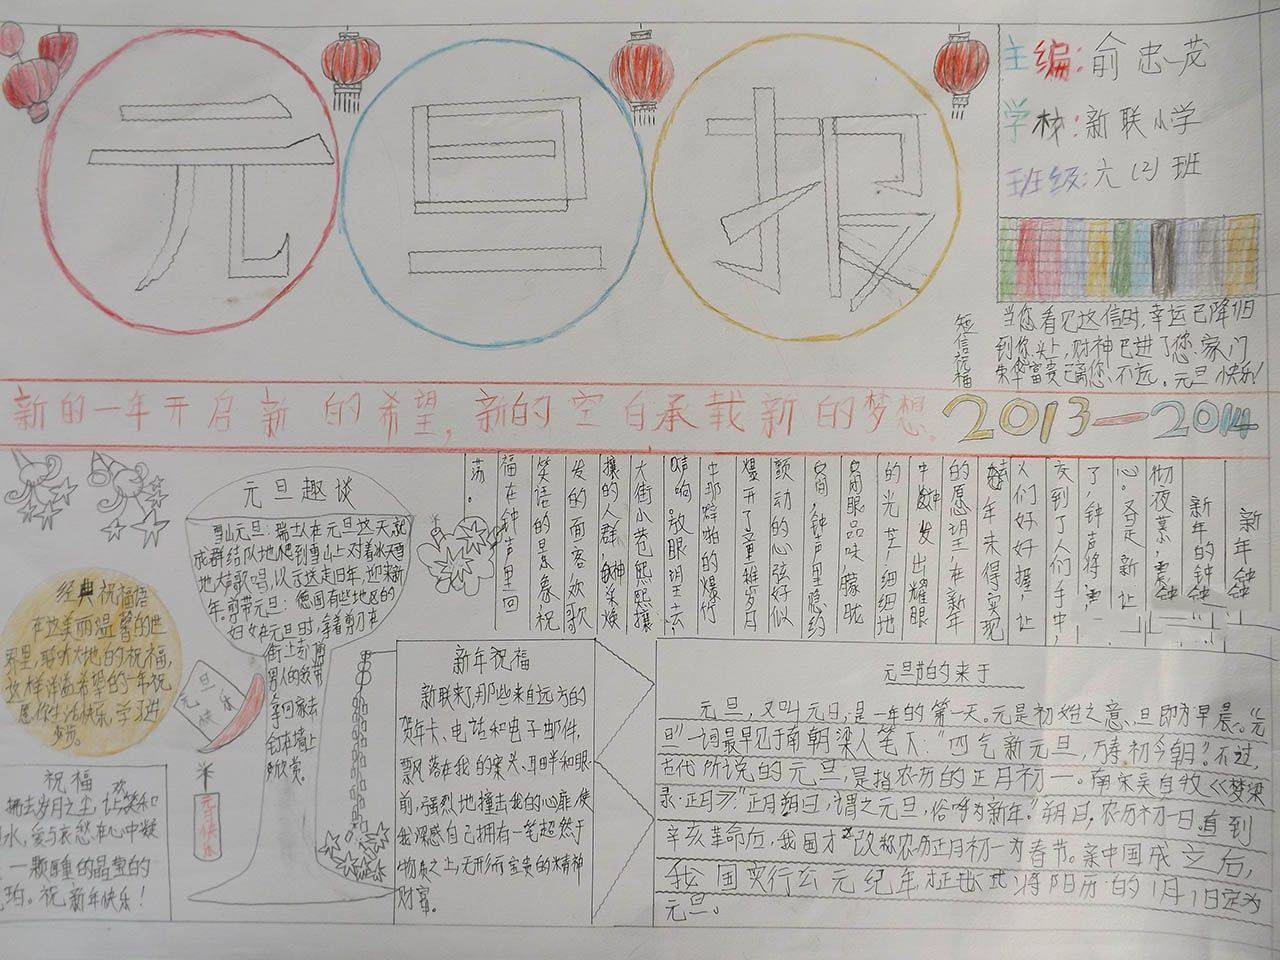 元旦报
主编:俞忠茂
学材:新联小学
班级:六(2)班
短信祝福
当您看见这信时,幸运已降归
到你头上,财神已进了您家门
荣华富贵已离您不远。元旦快乐!
新的一年开启新的希望,新的空白承载新的梦想。2013—2014
新年钟
新年的钟
彻夜幕,震
心。又是新让
了,钟声将
交到了人们手中,
人们好好握,让
年未得实现
的愿望在新年
中散发出耀眼
的光芒,细细地
闭眼品味,朦胧
间,钟声里隐约
颤动的心弦好似
爆开了童稚岁月
中那噼啪的爆竹
响声。放眼望去,
大街小巷熙熙攘
攘的人群,神采焕
发的面容欢歌
笑语的景象祝
福在钟声里回
荡。
元旦趣谈
雪山元旦:瑞士人在元旦这天就
成群结队地爬到雪山上对着冰天雪
地大声歌唱,以示送走旧年,迎来新
年。剪带元旦:德国有些地区的
妇女在元旦时,拿着剪刀在
街上剪
男人的领带
拿回家去
钉在墙上
欣赏。
经典祝福语
在这美丽温馨的世
界里,聆听大地的祝福,
这样洋溢希望的一年祝
愿你生活快乐,学习进
步。
元旦
快乐
元旦快乐
祝福
拥去岁月之尘,让笑和
水,爱与哀愁在心中凝
一颗厚重的晶莹的
珀。祝新年快乐!
新年祝福
新联来了,那些来自远方的
贺年卡、电话和电子邮件,
飘落在我的案头、耳畔和眼
前,强烈地撞击我的心扉,使
我深感自己拥有一笔超然于
物质之上,无形而宝贵的精神
财富。
元旦节的来于
元旦,又叫元日,是一年的第一天。元是初始之意,旦即为早晨。“元
旦”一词最早见于南朝梁人笔下:“四气新元旦,万寿初今朝”。不过,
古代所说的元旦,是指农历的正月初一。南宋吴自牧《梦梁
录·正月》:“正月朔日,谓之元旦,俗呼为新年”。朔日,农历初一日,直到
辛亥革命后,我国才改称农历正月初一为春节。新中国成立后,
我国实行公元纪年正式将阳历的1月1日定为
元旦。